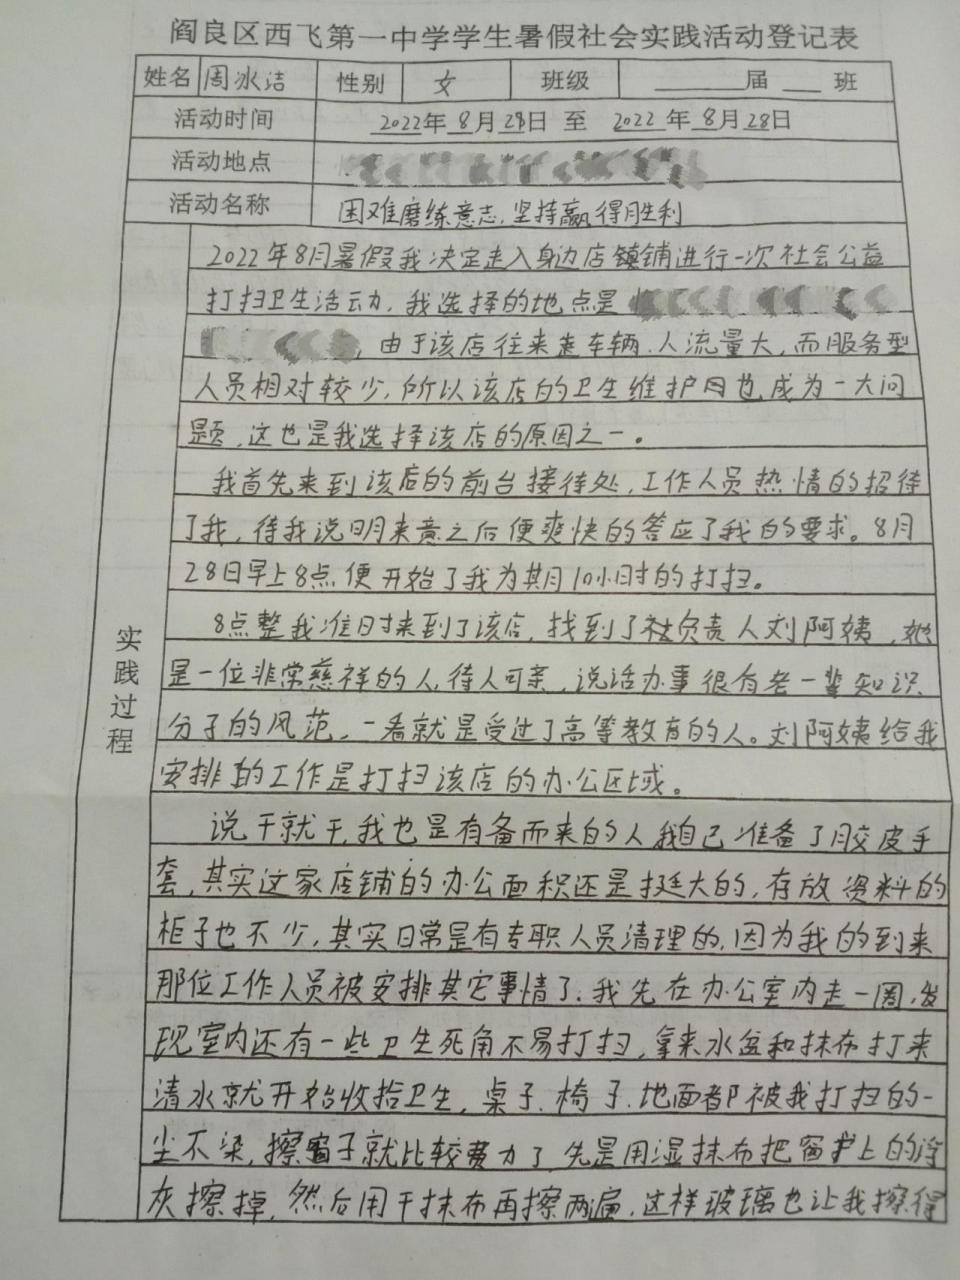 阎良区西飞第一中学学生暑假社会实践活动登记表
姓名 周冰洁 性别 女 班级 ____届 __ 班
活动时间 2022年 8月 28日 至 2022年 8月 28日
活动地点
活动名称 困难磨练意志,坚持赢得胜利
实践过程
2022年8月暑假我决定走入身边店镇铺进行一次社会公益
打扫卫生活动,我选择的地点是
,由于该店往来走车辆、人流量大,而服务型
人员相对较少,所以该店的卫生维护用也成为一大问
题,这也是我选择该店的原因之一。
我首先来到该店的前台接待处,工作人员热情的招待
了我,待我说明来意之后便爽快的答应了我的要求。8月
28日早上8点便开始了我为其月10小时的打扫。
8点整我准时来到了该店,找到了负责人刘阿姨,她
是一位非常慈祥的人,待人可亲,说话办事很有老一辈知识
分子的风范,一看就是受过了高等教育的人。刘阿姨给我
安排的工作是打扫该店的办公区域。
说干就干,我也是有备而来的人我自己准备了胶皮手
套,其实这家店铺的办公面积还是挺大的,存放资料的
柜子也不少,其实日常是有专职人员清理的,因为我的到来
那位工作人员被安排其它事情了,我先在办公室内走一圈,发
现室内还有一些卫生死角不易打扫,拿来水盆和抹布打来
清水就开始收拾卫生,桌子、椅子、地面都被我打扫的一
尘不染,擦窗子就比较费力了,先是用湿抹布把窗护上的浮
灰擦掉,然后用干抹布再擦两遍,这样玻璃也让我擦得